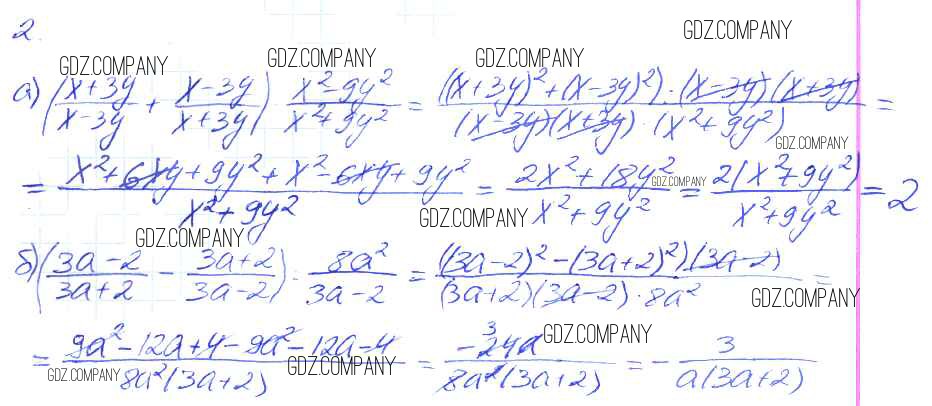 2.
GDZ.COMPANY GDZ.COMPANY GDZ.COMPANY GDZ.COMPANY
а) ((x+3y)/(x-3y) + (x-3y)/(x+3y)) · (x²-9y²)/(x²+9y²) = ((x+3y)²+(x-3y)²)·(x-3y)(x+3y)/((x-3y)(x+3y)·(x²+9y²)) =
GDZ.COMPANY
= (x²+6xy+9y²+x²-6xy+9y²)/(x²+9y²) = (2x²+18y²)/(x²+9y²) = 2(x²+9y²)/(x²+9y²) = 2
GDZ.COMPANY GDZ.COMPANY GDZ.COMPANY
б) ((3a-2)/(3a+2) - (3a+2)/(3a-2)) : 8a²/(3a-2) = ((3a-2)²-(3a+2)²)(3a-2)/((3a+2)(3a-2)·8a²) =
GDZ.COMPANY
= (9a²-12a+4-9a²-12a-4)/(8a²(3a+2)) = -24a/(8a²(3a+2)) = -3/(a(3a+2))
GDZ.COMPANY GDZ.COMPANY GDZ.COMPANY